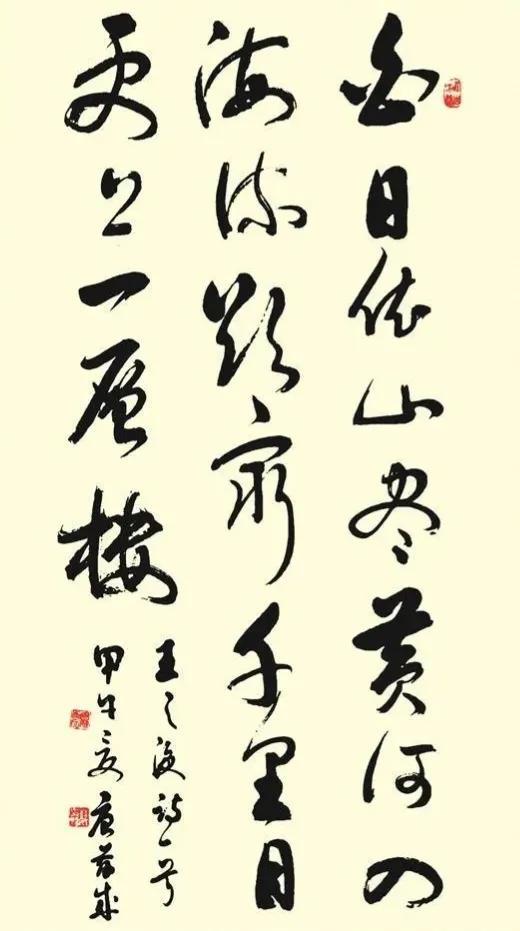 白日依山尽黄河入
海流欲窮千里目
更上一層樓
王之涣诗一首
甲午夏